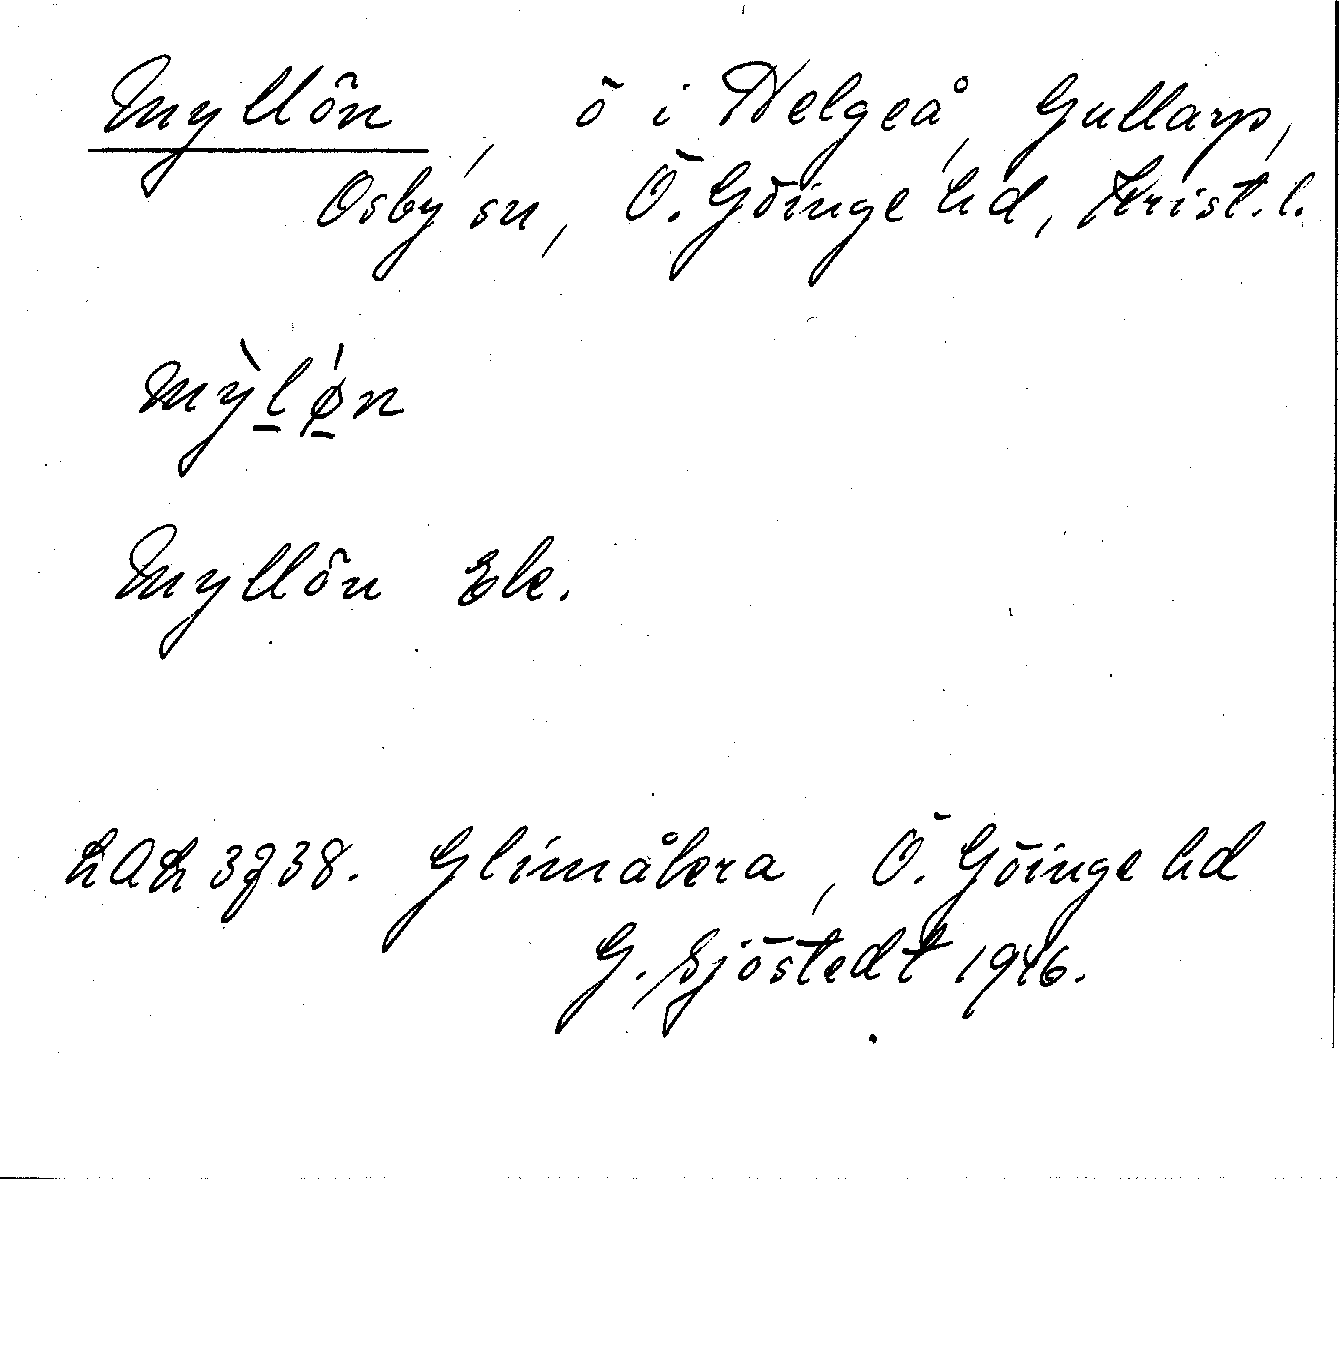 Myllön, ö i Helgeå, Gullarp,
Osby sn, Ö. Göinge hd, Krist. l.
mỳl̲ǿ̲n
Myllön Ek.
LAL 3738. Glimåkra, Ö. Göinge hd
G. Sjöstedt 1946.